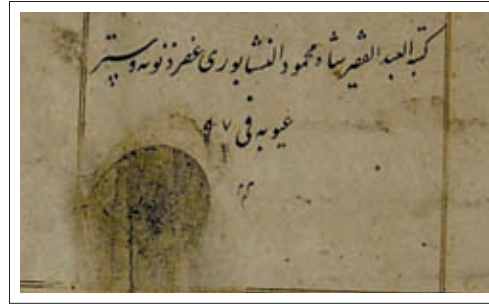 كتبه العبد الفقير شاه محمود النيشابوری غفر ذنوبه و ستر
عيوبه فی